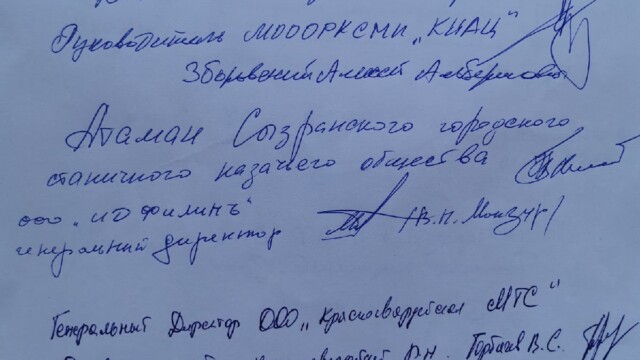 Руководитель МОООРКСМИ „КИАЦ"
Зборовский Алексей Альбертович
Атаман Сызранского городского
станичного казачьего общества
ООО „ИД Филинъ"
генеральный директор
Генеральный Директор ООО „Красногвардейская МТС"
В.С.